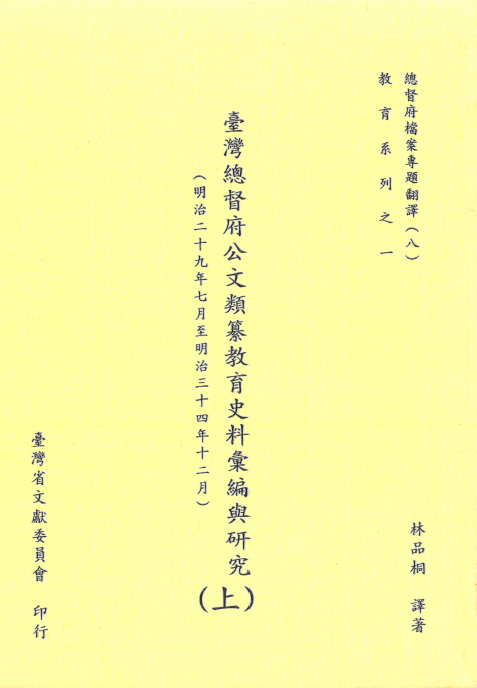 總督府檔案專題翻譯(八)
教育系列之一
林品桐 譯著
臺灣總督府公文類纂教育史料彙編與研究
(上)
(明治二十九年七月至明治三十四年十二月)
臺灣省文獻委員會 印行